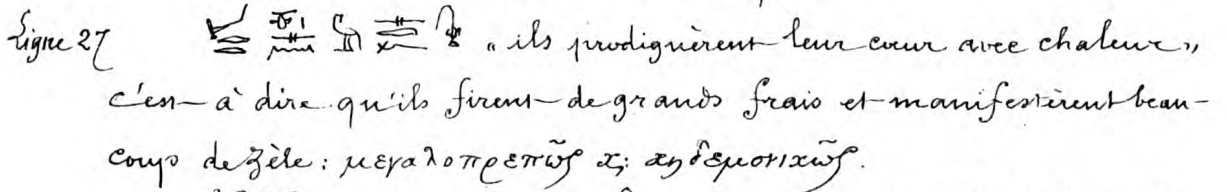 Ligne 27 « ils prodiguèrent leur cœur avec chaleur »,
c'est-à dire qu'ils firent de grands frais et manifestèrent beau-
coup de zèle : μεγαλοπρεπῶς ϗ κηδεμονικῶς.